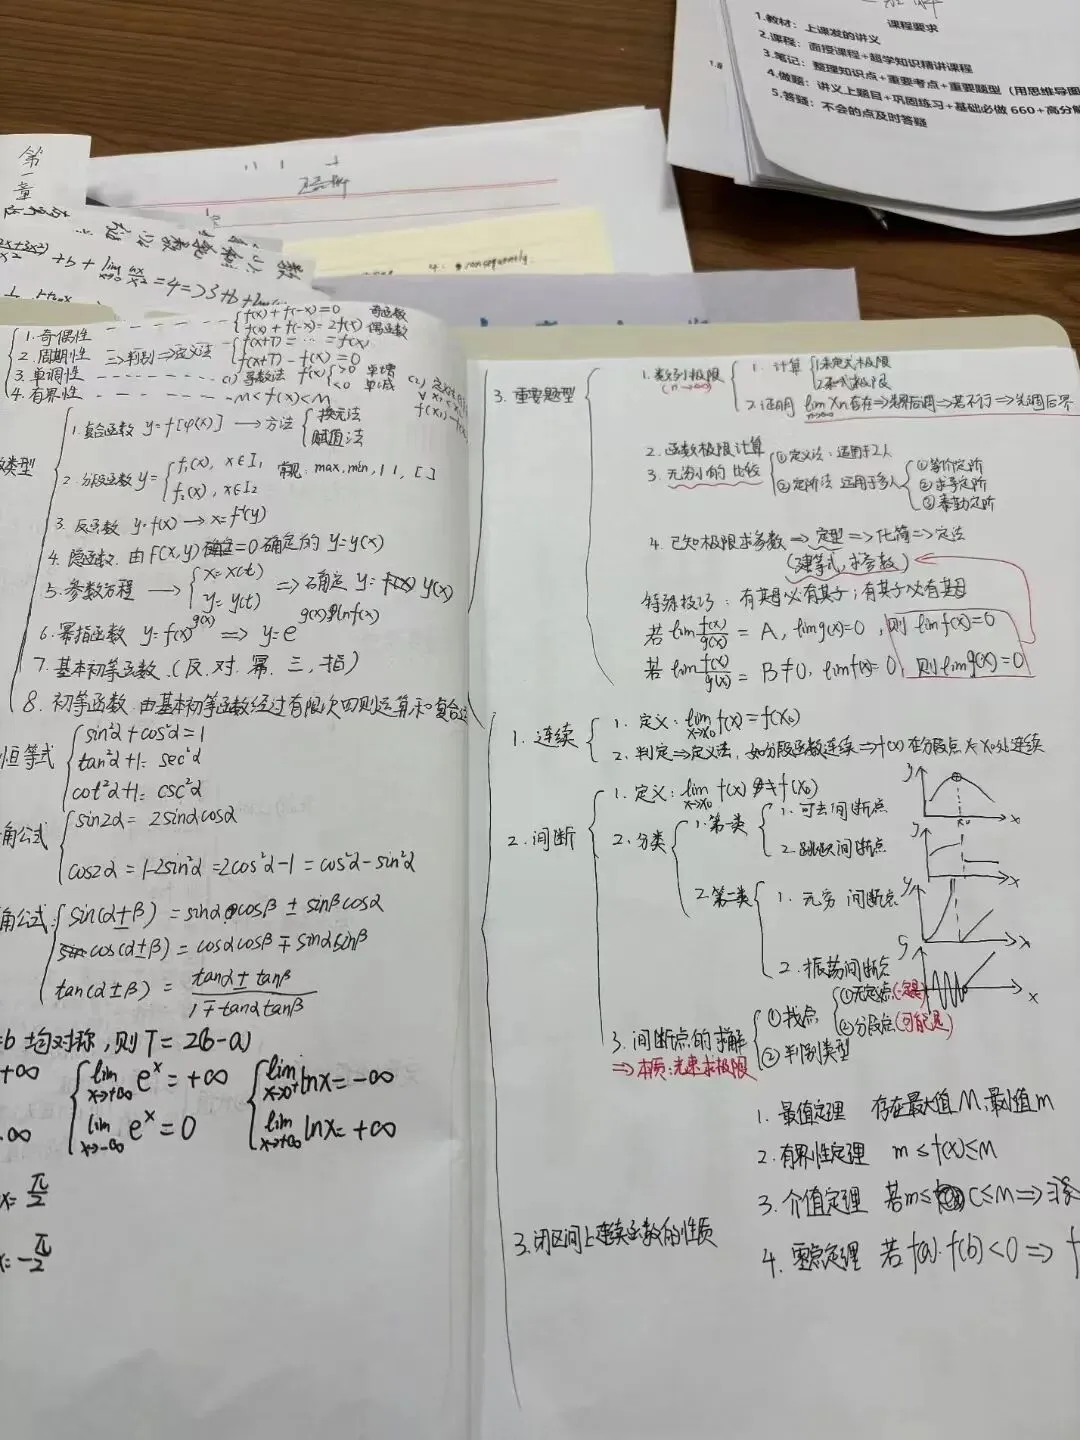 课程要求
1.教材：上课发的讲义
2.课程：面授课程+超学知识精讲课程
3.笔记：整理知识点+重要考点+重要题型（用思维导图
4.做题：讲义上题目+巩固练习+基础必做660+高分
5.答疑：不会的点及时答疑
第一章
4. consequently.
1.奇偶性 f(x)+f(-x)=0 奇函数
f(x)+f(-x)=2f(x) 偶函数
2.周期性 三>判别=>定义法 f(x+T)=…=f(x)
f(x+T)-f(x)=0
3.单调性 (1) 导数法 f(x) >0 单增 <0 单减
4.有界性 m<f(x)<M
类型
1.复合函数 y=f[φ(x)] → 方法 换元法
赋值法
2.分段函数 y= f₁(x), x∈I₁
f₂(x), x∈I₂ 常见 max, min, | |, [ ]
3. 反函数 y=f(x) → x=f⁻¹(y)
4. 隐函数 由F(x,y)=0确定的y=y(x)
5. 参数方程 → x=x(t)
y=y(t) => 确定 y=y(x)
6.幂指函数 y=f(x)^g(x) => y=e^g(x)ln f(x)
7. 基本初等函数 (反,对,幂,三,指)
8. 初等函数 由基本初等函数经过有限次四则运算和复合
恒等式 sin²α+cos²α=1
tan²α+1=sec²α
cot²α+1=csc²α
角公式 sin2α=2sinαcosα
cos2α=1-2sin²α=2cos²α-1=cos²α-sin²α
角公式: sin(α±β)=sinαcosβ±sinβcosα
cos(α±β)=cosαcosβ∓sinαsinβ
tan(α±β)= (tanα±tanβ)/(1∓tanαtanβ)
=b均对称,则T=2(b-a)
+∞ lim x→+∞ eˣ=+∞ lim x→0⁺ lnx=-∞
∞ lim x→-∞ eˣ=0 lim x→+∞ lnx=+∞
x=π/2
x=-π/2
3. 重要题型
1.数列极限 (n→∞)
1. 计算 1.未定式极限
2.和式极限
2.证明 lim Xn存在=>先界后调=>若不行=>先调后界
2. 函数极限计算
3. 无穷小的比较 ①定义法:适用于2人
②定阶法 适用于多人 ①等价定阶
②求导定阶
③泰勒定阶
4. 已知极限求参数=>定型=>化简=>定法
(建等式,求参数)
特殊技巧: 有其母必有其子;有其子必有其母
若 lim f(x)/g(x)=A, lim g(x)=0, 则 lim f(x)=0
若 lim f(x)/g(x)=B≠0, lim f(x)=0, 则 lim g(x)=0
1. 连续
1. 定义: lim x→x₀ f(x)=f(x₀)
2. 判定=>定义法, 如分段函数连续=>f(x)在分段点x=x₀处连续
2. 间断
1. 定义: lim x→x₀ f(x)≠f(x₀)
2. 分类 1.第一类 1. 可去间断点
2. 跳跃间断点
2.第二类 1. 无穷间断点
2. 振荡间断点
3. 间断点的求解 ①找点 ①无定义点(一定是)
②分段点(可能是)
②判别类型
=>本质:光速求极限
y x x₀
y x
y x
y x
3.闭区间上连续函数的性质
1. 最值定理 存在最大值M,最小值m
2.有界性定理 m≤f(x)≤M
3. 介值定理 若m≤C≤M=>
4. 零点定理 若f(a)·f(b)<0=>